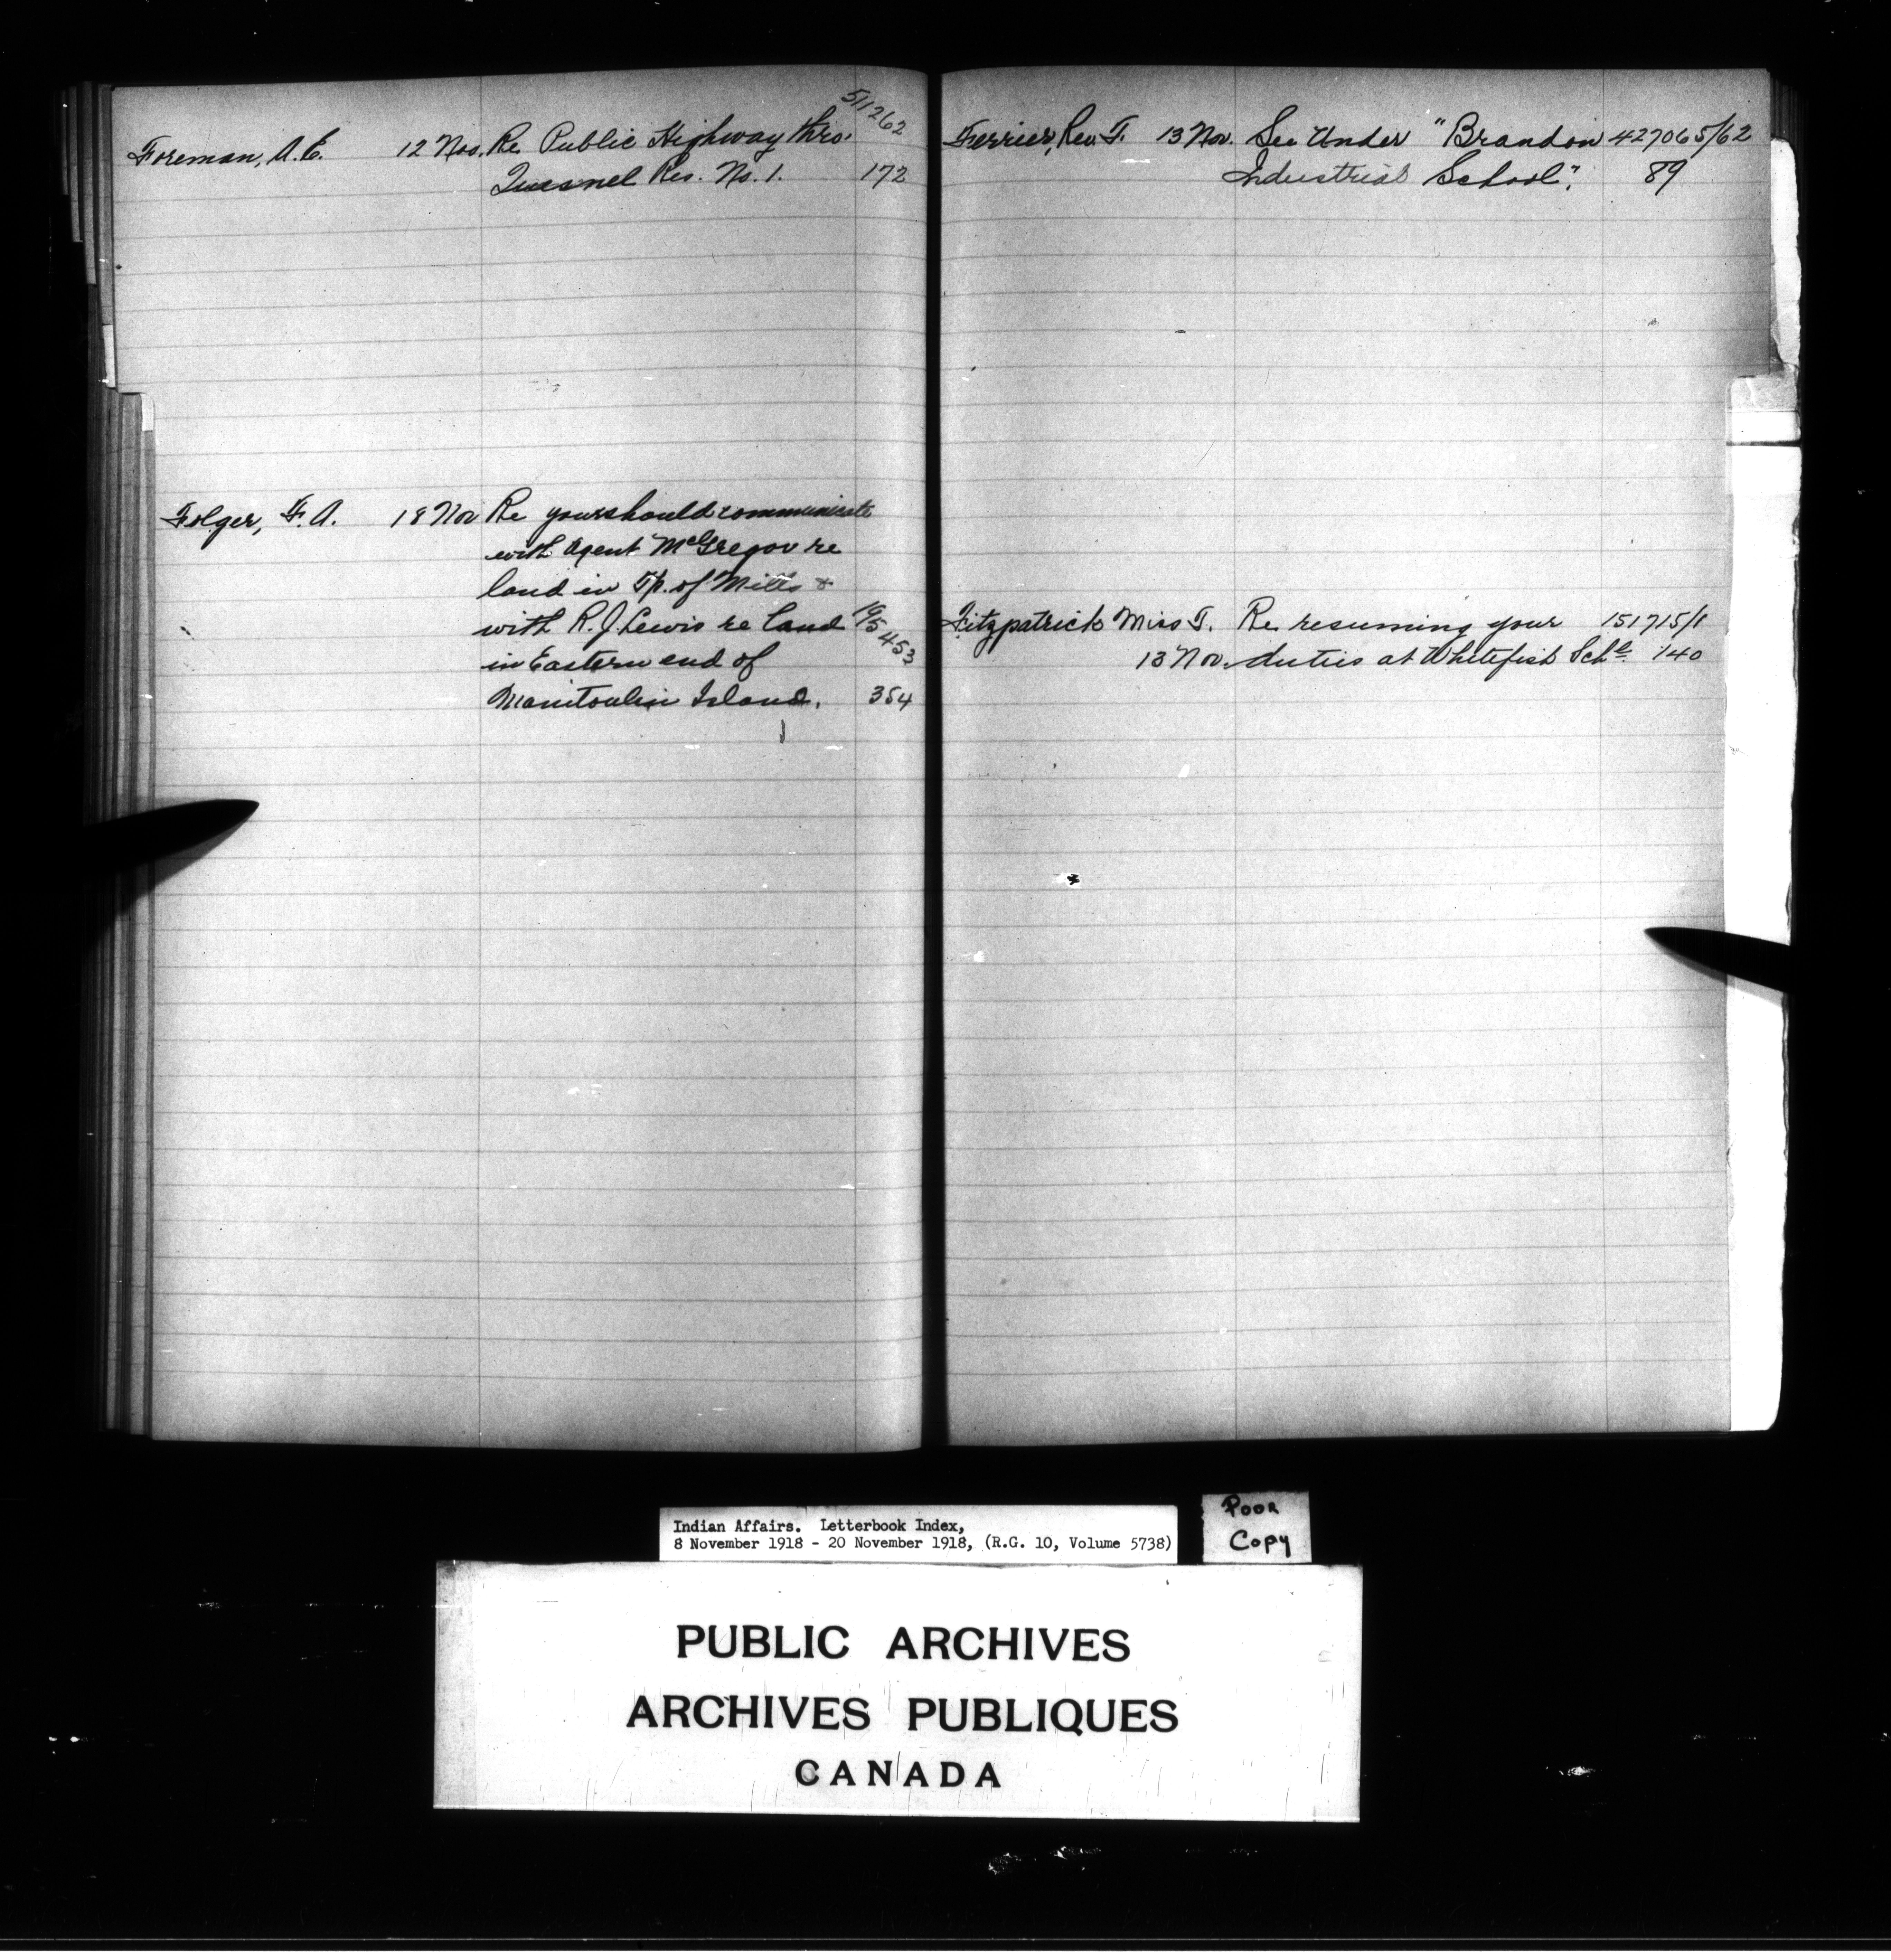 511262
Foreman, A. E. 12 Nov. Re Public Highway thro.
Quesnel Res. No. 1. 172
Folger, F. A. 18 Nov Re your should communicate
with Agent McGregor re
land in Tp. of Mills &
with R. J. Lewis re land 195453
in Eastern end of
Manitoulin Island. 354
Ferrier, Rev. T. 13 Nov. See Under "Brandon 427065/62
Industrial School". 89
Fitzpatrick Miss T. Re resuming your 151715/1
13 Nov. duties at Whitefish Schl. 140
Indian Affairs. Letterbook Index,
8 November 1918 - 20 November 1918, (R.G. 10, Volume 5738)
POOR
Copy
PUBLIC ARCHIVES
ARCHIVES PUBLIQUES
CANADA